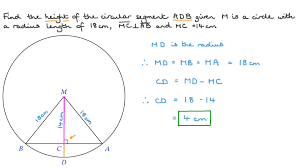 Find the height of the circular segment ADB given M is a circle with
a radius length of 18cm, MC⊥AB and MC = 14cm
MD is the radius
∴ MD = MB = MA = 18cm
CD = MD - MC
∴ CD = 18 - 14
= 4cm
M
18cm
14cm
18cm
B
C
A
D